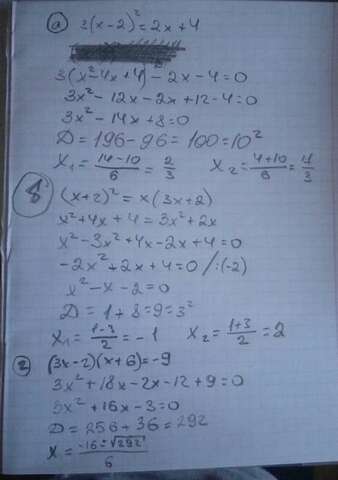 а) 3(x-2)²=2x+4
3(x²-4x+4)-2x-4=0
3x²-12x-2x+12-4=0
3x²-14x+8=0
D=196-96=100=10²
x₁=(14-10)/6=2/3 x₂=(4+10)/6=4/3
в) (x+2)²=x(3x+2)
x²+4x+4=3x²+2x
x²-3x²+4x-2x+4=0
-2x²+2x+4=0/:(-2)
x²-x-2=0
D=1+8=9=3²
x₁=(1-3)/2=-1 x₂=(1+3)/2=2
г) (3x-2)(x+6)=-9
3x²+18x-2x-12+9=0
3x²+16x-3=0
D=256+36=292
x=(-16±√292)/6